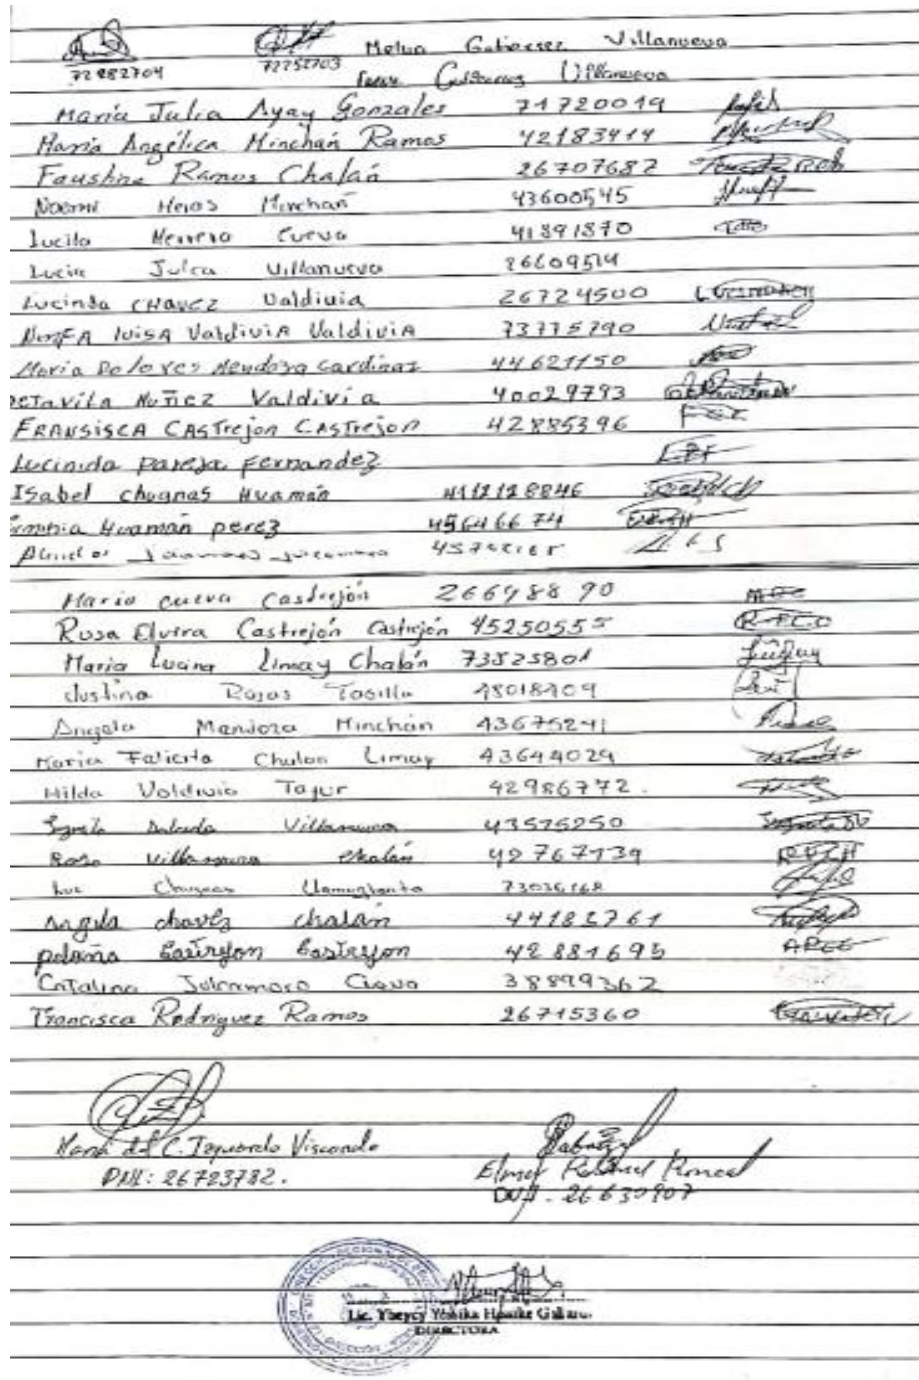 72882704 72752703 Melva Gutierrez Villanueva
Gutierrez Villanueva
Maria Julia Ayay Gonzales 71720019
Maria Angélica Minchán Ramos 42183414
Faustina Ramos Chalán 26707682
Noemi Heras Minchan 43600545
Lucila Herrera Cueva 41891870
Lucia Julca Villanueva 26609514
Lucinda CHAVEZ Valdivia 26724500
LUISA ValdiviA ValdiviA 73775790
Maria Dolores Mendoza Cardinas 44621150
Octavila Nuñez Valdivia 40029793
FRANSISCA CASTrejon CASTrejon 42885396
Lucinida pareja fernandez EPF
Isabel chuqnas Huamán 41121 8846
Huamán perez 45646674
Maria cueva Castrejón 266988 90
Rosa Elvira Castrejón Castrejón 45250555
Maria Lucina Limay Chalán 73823801
Justina Rojas Tasilla 48018409
Angela Mendoza Minchán 43675241
Maria Felicita Chulon Limay 43644029
Hilda Valdivia Tajur 42986772.
Villanueva 43575250
Rosa Villanueva chalán 42767139
Luz 73036168
Angela chavez chalán 44182761
Castrejon Castrejon 42881695
Catalina Julcamoro Cueva 38899362
Francisca Rodriguez Ramos 26715360
Maria del C. Izquierdo Visconde
DNI: 26723782.
Elmer
DNI - 26630907
Lic. Yoshika
DIRECTORA